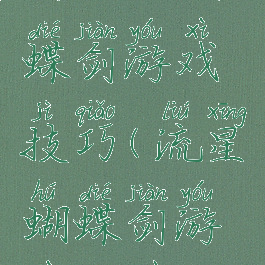 dié jiàn yóu xì
蝶剑游戏
jì qiǎo liú xīng
技巧(流星
hú dié jiàn yóu
蝴蝶剑游